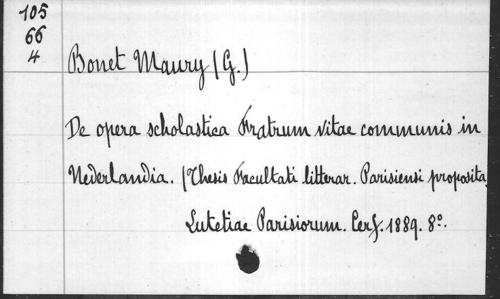 105
66
4
Bonet Maury (G.)
De opera scholastica Fratrum vitae communis in
Nederlandia. (Thesis Facultati litterar. Parisiensi proposita
Lutetiae Parisiorum. Cerf. 1889. 8°.